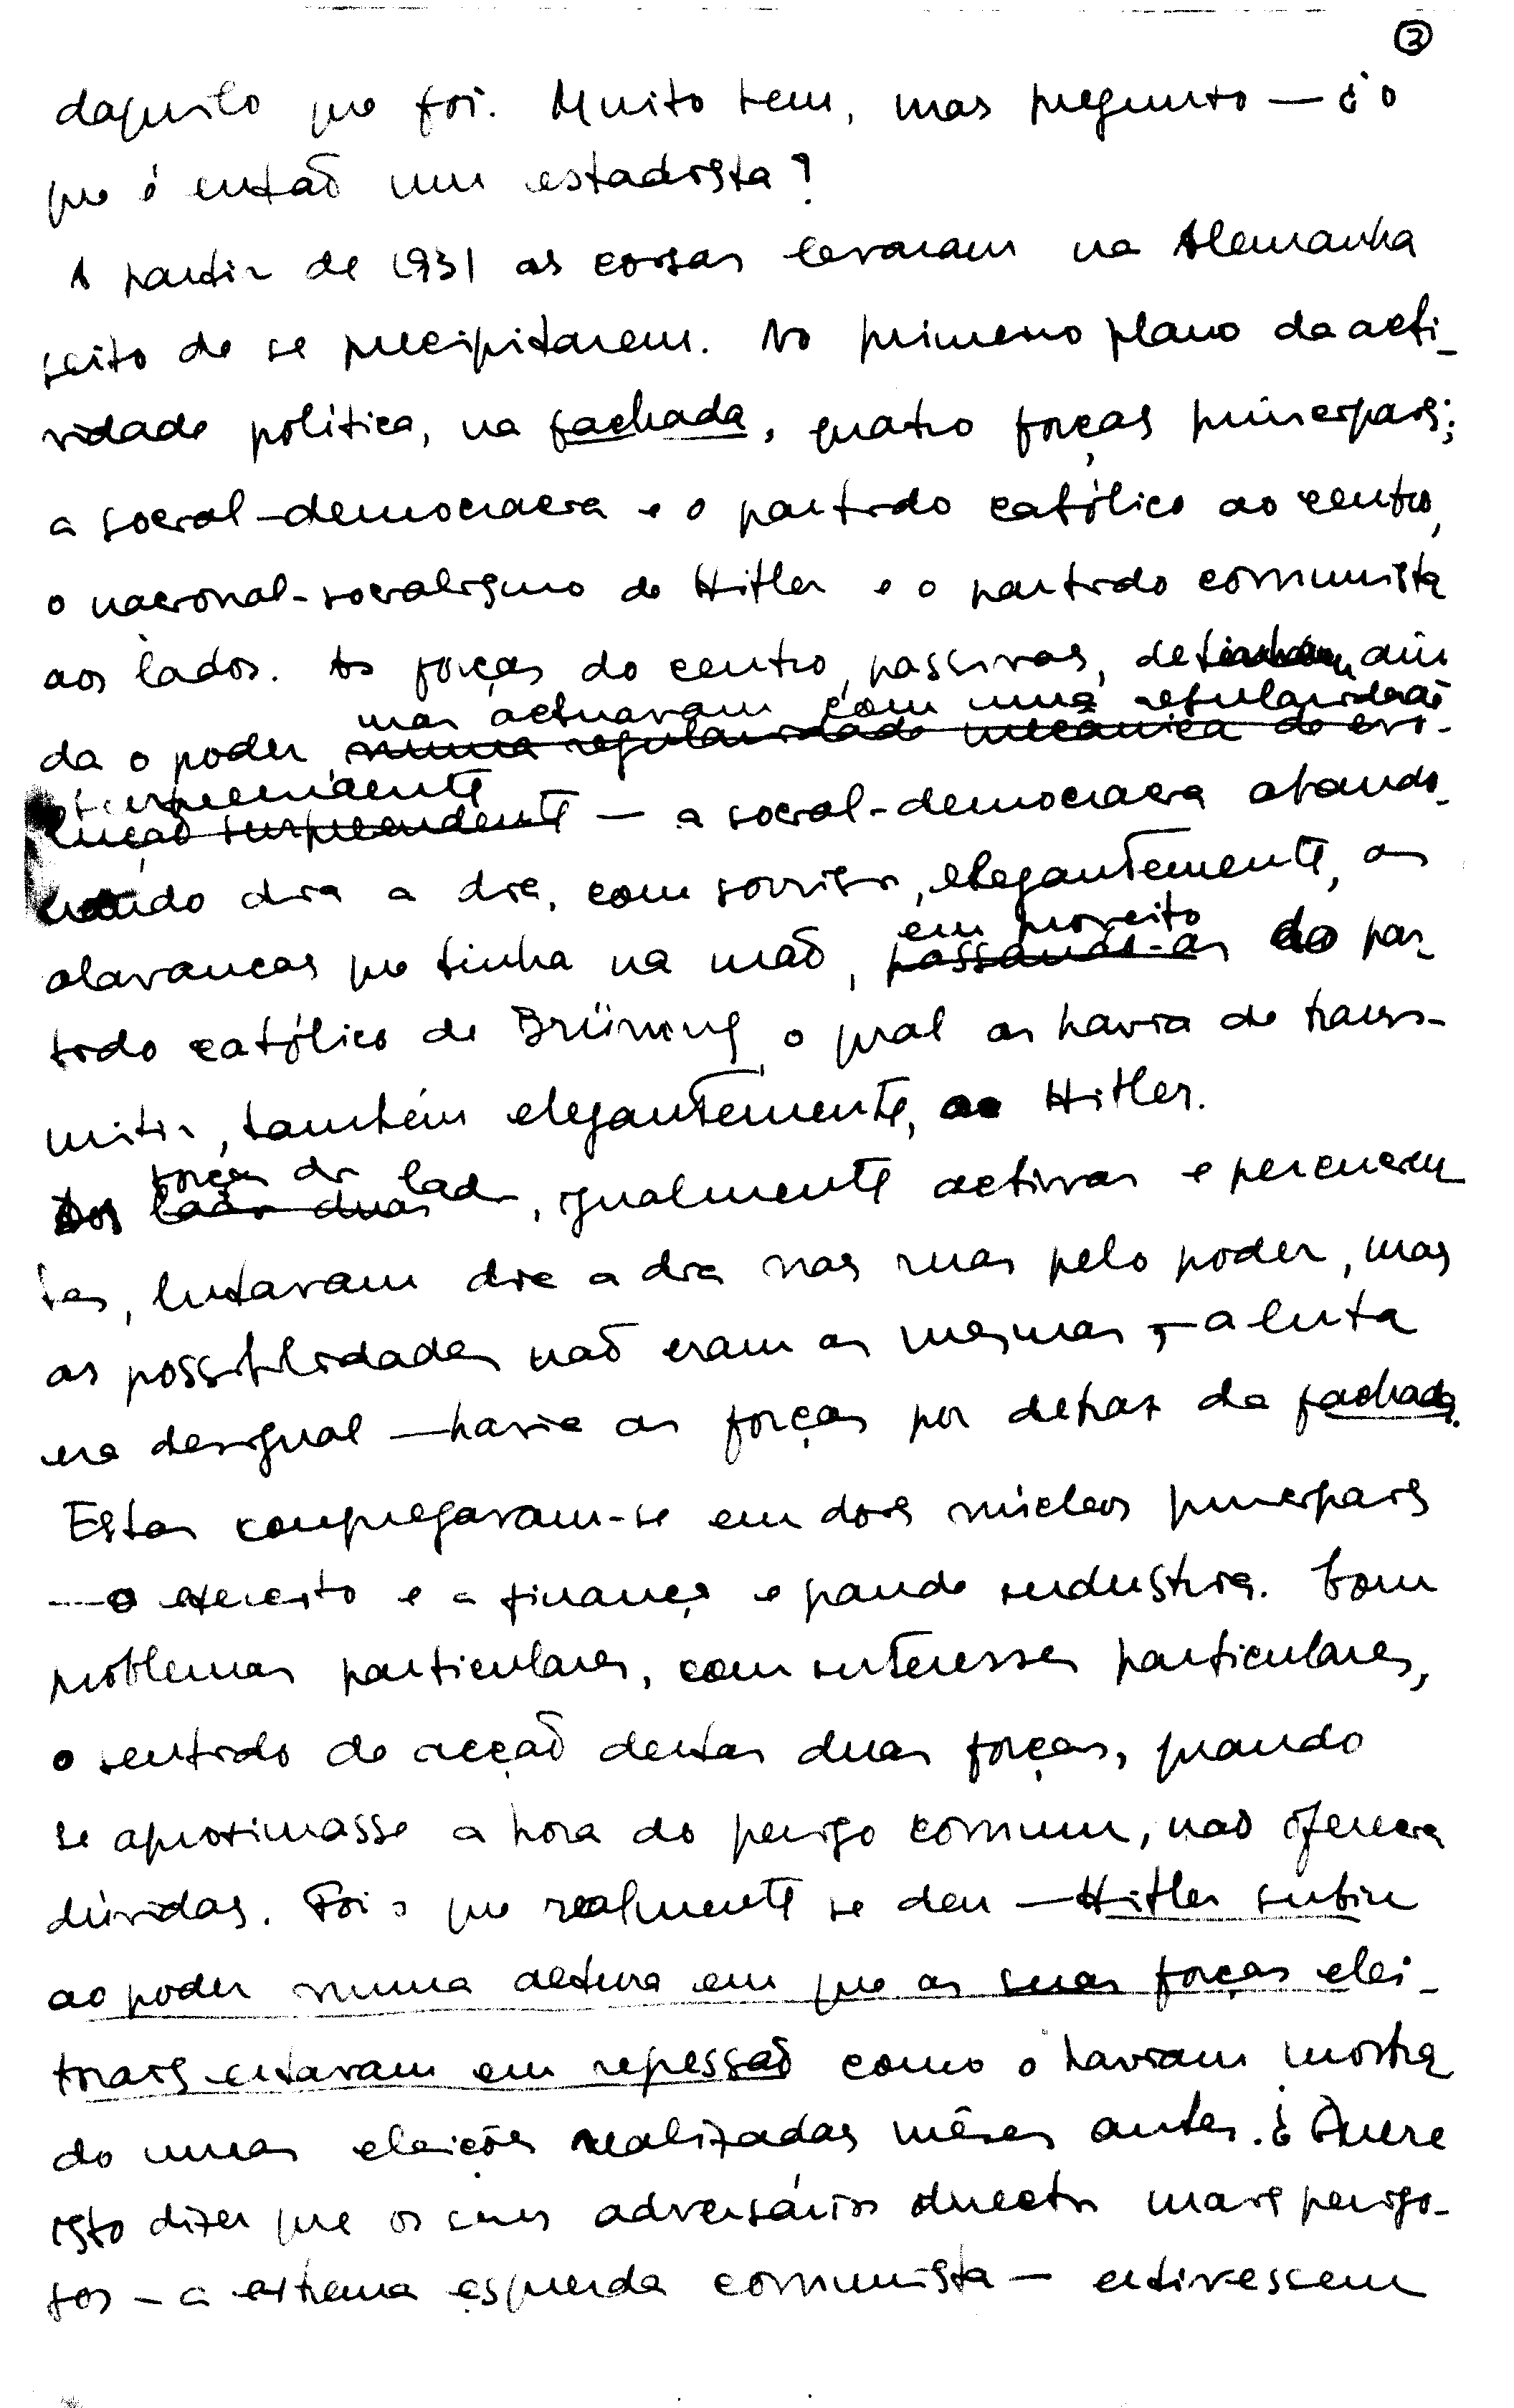 ③
daquilo que foi. Muito bem, mas pregunto — ¿ o
que é então um estadista?
A partir de 1931 as coisas levaram na Alemanha
geito de se precipitarem. No primeiro plano da acti-
vidade política, na fachada, quatro forças principais;
a social-democracia e o partido católico ao centro,
o nacional-socialismo de Hitler e o partido comunista
aos lados. As forças do centro, passivas, detinham ain
mas actuavam com uma regularidade
da o poder, numa regularidade mecânica de evo-
surpreendente
lução surpreendente — a social-democracia abando-
nando dia a dia, com sorrisos, elegantemente, as
em proveito
alavancas que tinha na mão, passando-as do par-
tido católico de Brüning o qual as havia de trans-
mitir, também elegantemente, a Hitler.
forças dos lados
Aos lados duas, igualmente activas e percucien
tes, lutavam dia a dia nas ruas pelo poder, mas
as possibilidades não eram as mesmas, — a luta
era desigual — havia as forças por detraz da fachada.
Estas congregavam-se em dois núcleos principais
— o exercito e a finança e grande industria. Com
problemas particulares, com interesses particulares,
o sentido de acção destas duas forças, quando
se aproximasse a hora do perigo comum, não oferecia
dúvidas. Foi o que realmente se deu — Hitler subiu
ao poder numa altura em que as suas forças elei-
torais estavam em regressão como o haviam mostra
do umas eleições realizadas mêses antes. ¿ Quere
isto dizer que os seus adversários directos mais perigo-
sos — a extrema esquerda comunista — estivessem